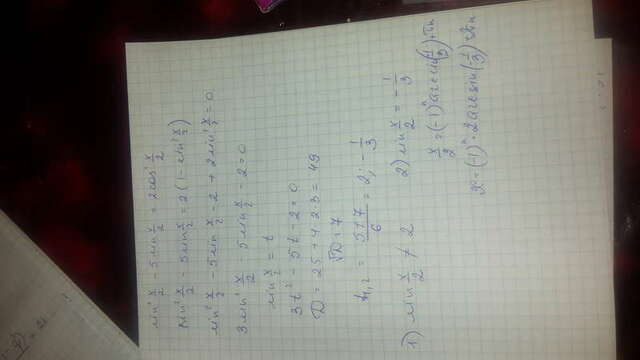 sin² x/2 - 5sin x/2 = 2cos² x/2
sin² x/2 - 5sin x/2 = 2(1 - sin² x/2)
sin² x/2 - 5sin x/2 - 2 + 2sin² x/2 = 0
3sin² x/2 5sin x/2 - 2 = 0
sin x/2 = t
3t² - 5t - 2 = 0
D = 25 + 4·2·3 = 49
√D = 7
t₁,₂ = 5±7/6 = 2; -1/3
1) sin x/2 ≠ 2
2) sin x/2 = -1/3
x/2 = (-1)ⁿ arcsin(-1/3) + πn
x = (-1)ⁿ · 2arcsin(-1/3) + 2πn